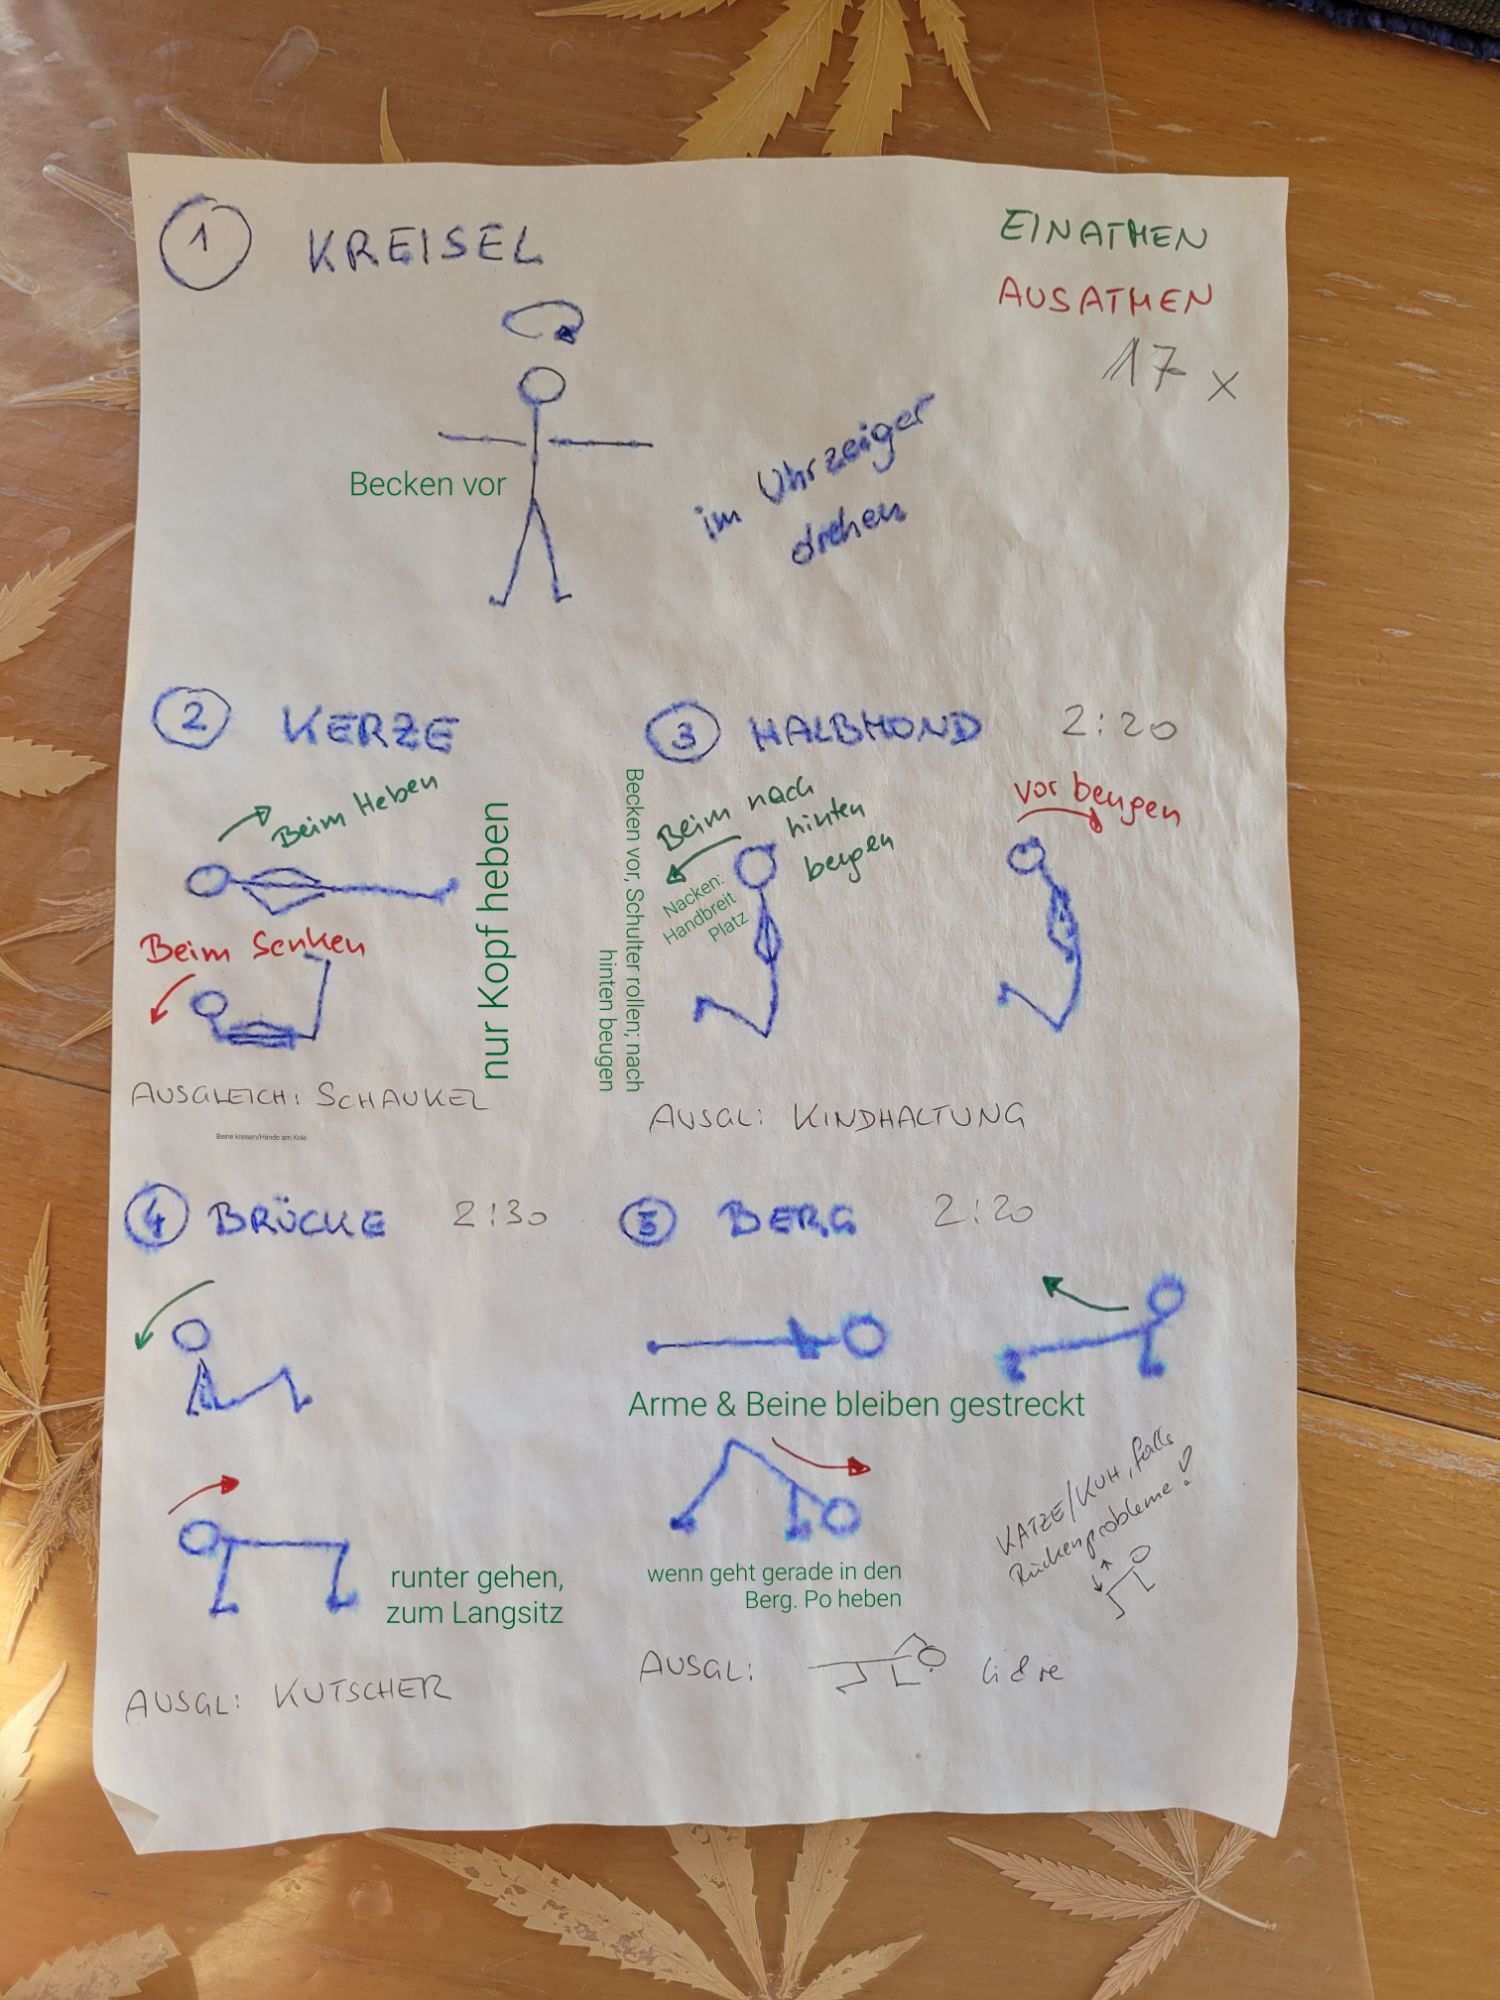 1 KREISEL
EINATMEN
AUSATMEN
17 x
Becken vor
im Uhrzeiger
drehen
2 KERZE
Beim Heben
Beim Senken
nur Kopf heben
AUSGLEICH: SCHAUKEL
Beine kreisen/Hände am Knie
3 HALBMOND 2:20
Becken vor, Schulter rollen; nach
hinten beugen
Beim nach
hinten
beugen
Nacken:
Handbreit
Platz
vor beugen
AUSGL: KINDHALTUNG
4 BRÜCKE 2:30
runter gehen,
zum Langsitz
AUSGL: KUTSCHER
5 BERG 2:20
Arme & Beine bleiben gestreckt
wenn geht gerade in den
Berg. Po heben
KATZE/KUH, falls
Rückenprobleme!
AUSGL: li & re